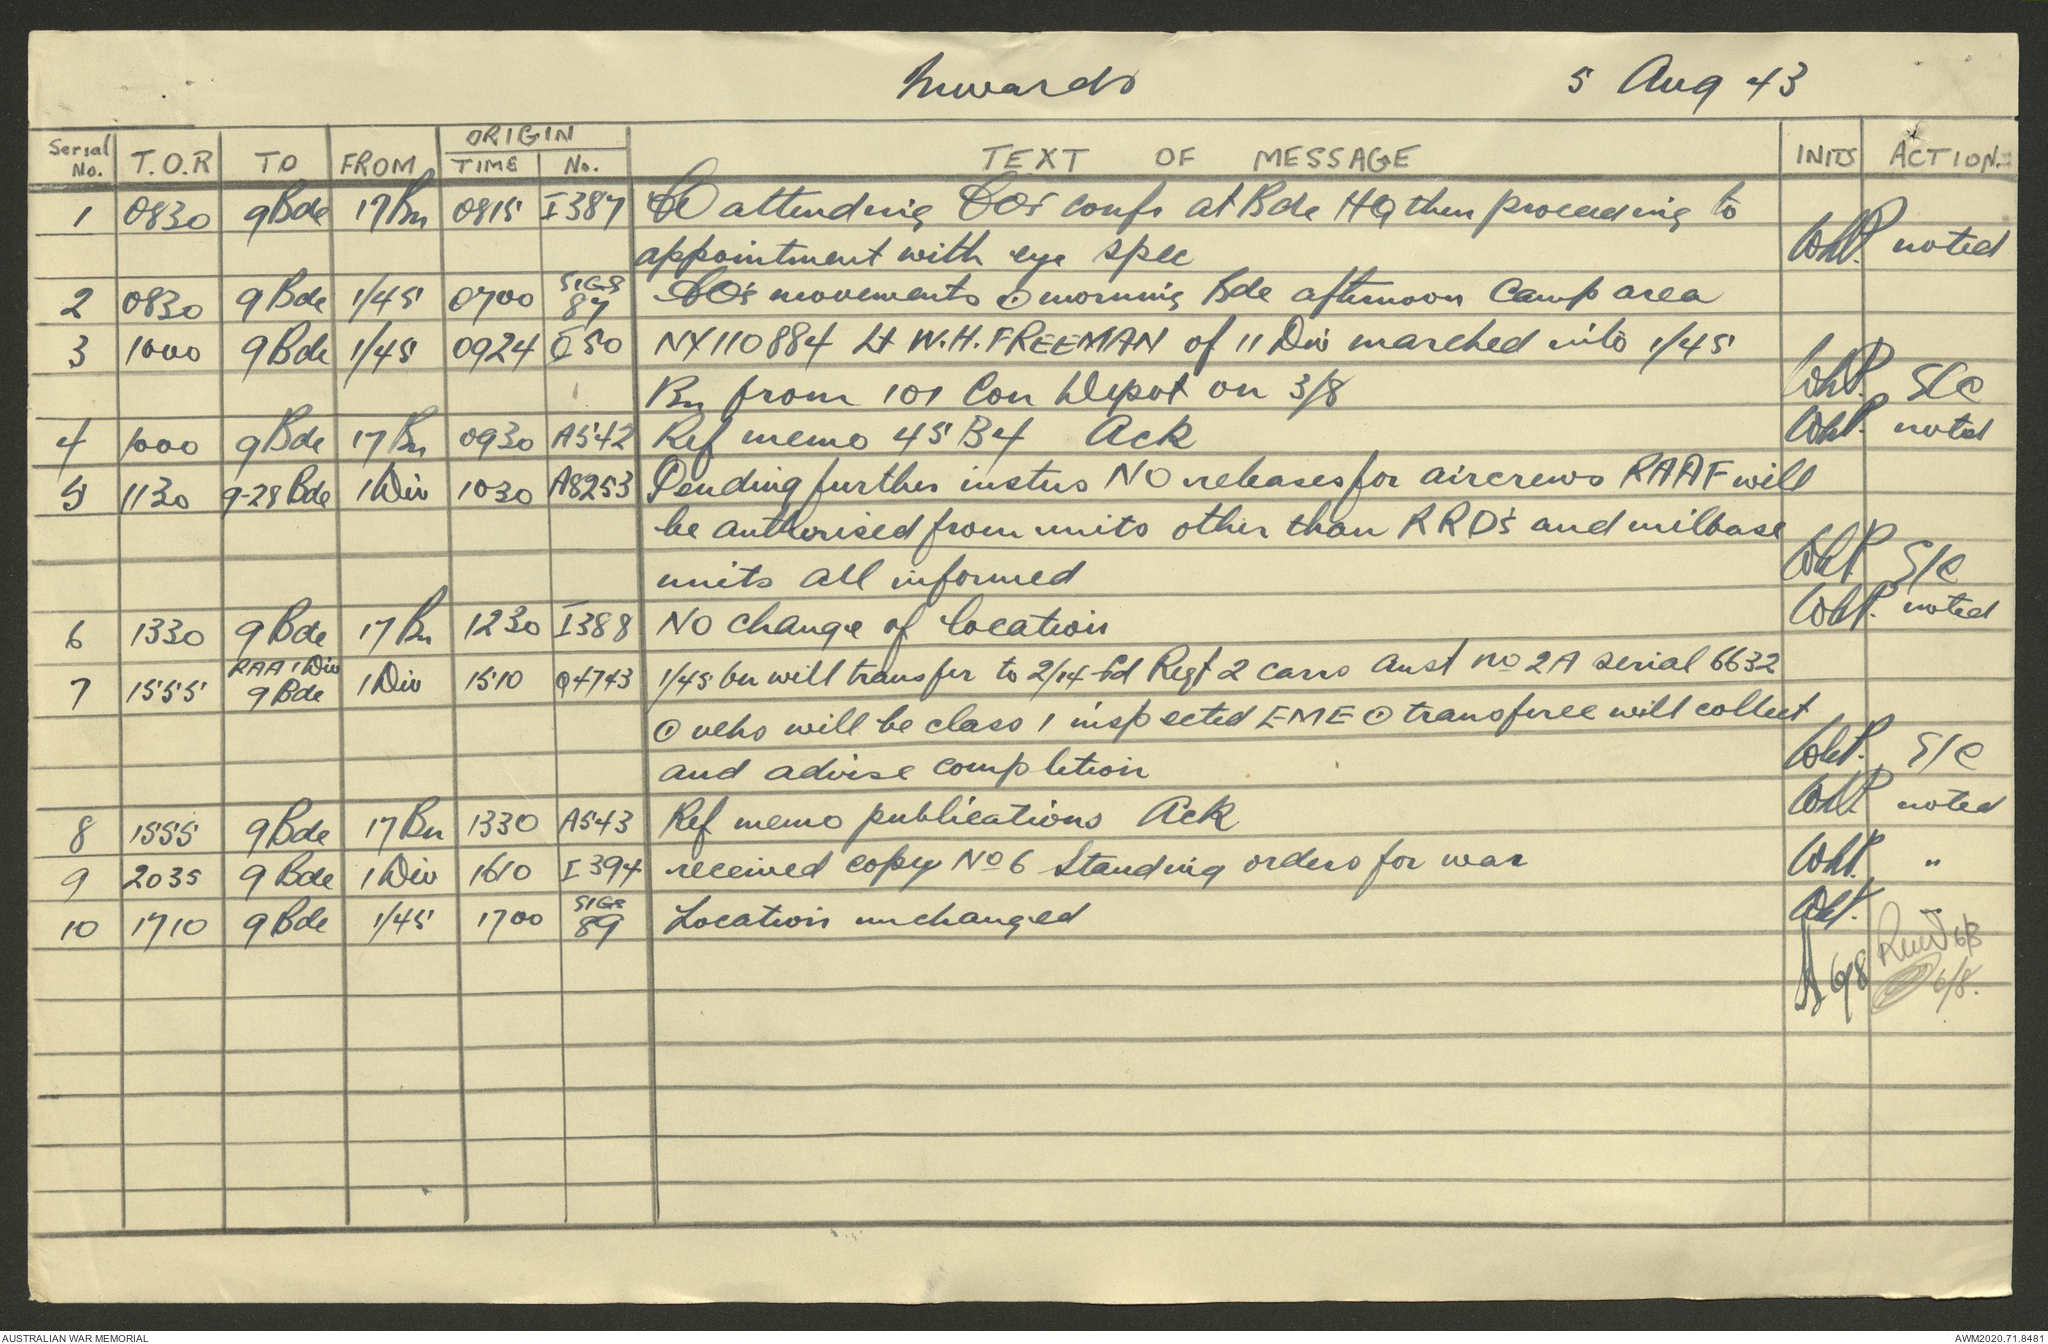 Inwards 5 Aug 43
Serial No. T.O.R TO FROM ORIGIN TIME No. TEXT OF MESSAGE INITS ACTION
1 0830 9 Bde 17 Bn 0815 I387 CO attending CO's confs at Bde HQ then proceeding to
appointment with eye spec WhP. noted
2 0830 9 Bde 1/45 0700 SIGS 87 CO's movements ⊙ morning Bde afternoon Camp area
3 1000 9 Bde 1/45 0924 Q50 NX110884 Lt W.H. FREEMAN of 11 Div marched into 1/45
Bn from 101 Con Depot on 3/8 WhP. S/C
4 1000 9 Bde 17 Bn 0930 A542 Ref memo 45 B4 Ack WhP. noted
5 1130 9-28 Bde 1 Div 1030 A8253 Pending further instns NO releases for aircrews RAAF will
be authorised from units other than RRD's and milbase
units all informed WhP. S/C
6 1330 9 Bde 17 Bn 1230 I388 NO change of location WhP. noted
7 1555 RAA 1 Div 9 Bde 1 Div 1510 Q4743 1/45 bn will transfer to 2/14 Fd Regt 2 carrs Aust No 2A serial 6632
⊙ vehs will be class 1 inspected EME ⊙ transferee will collect
and advise completion WhP. S/C
8 1555 9 Bde 17 Bn 1330 A543 Ref memo publications Ack WhP. noted
9 2035 9 Bde 1 Div 1610 I394 received copy No 6 Standing orders for war WhP. "
10 1710 9 Bde 1/45 1700 SIGS 89 Location unchanged WhP. "
6/8 6/8
6/8.
AUSTRALIAN WAR MEMORIAL AWM2020.71.8481